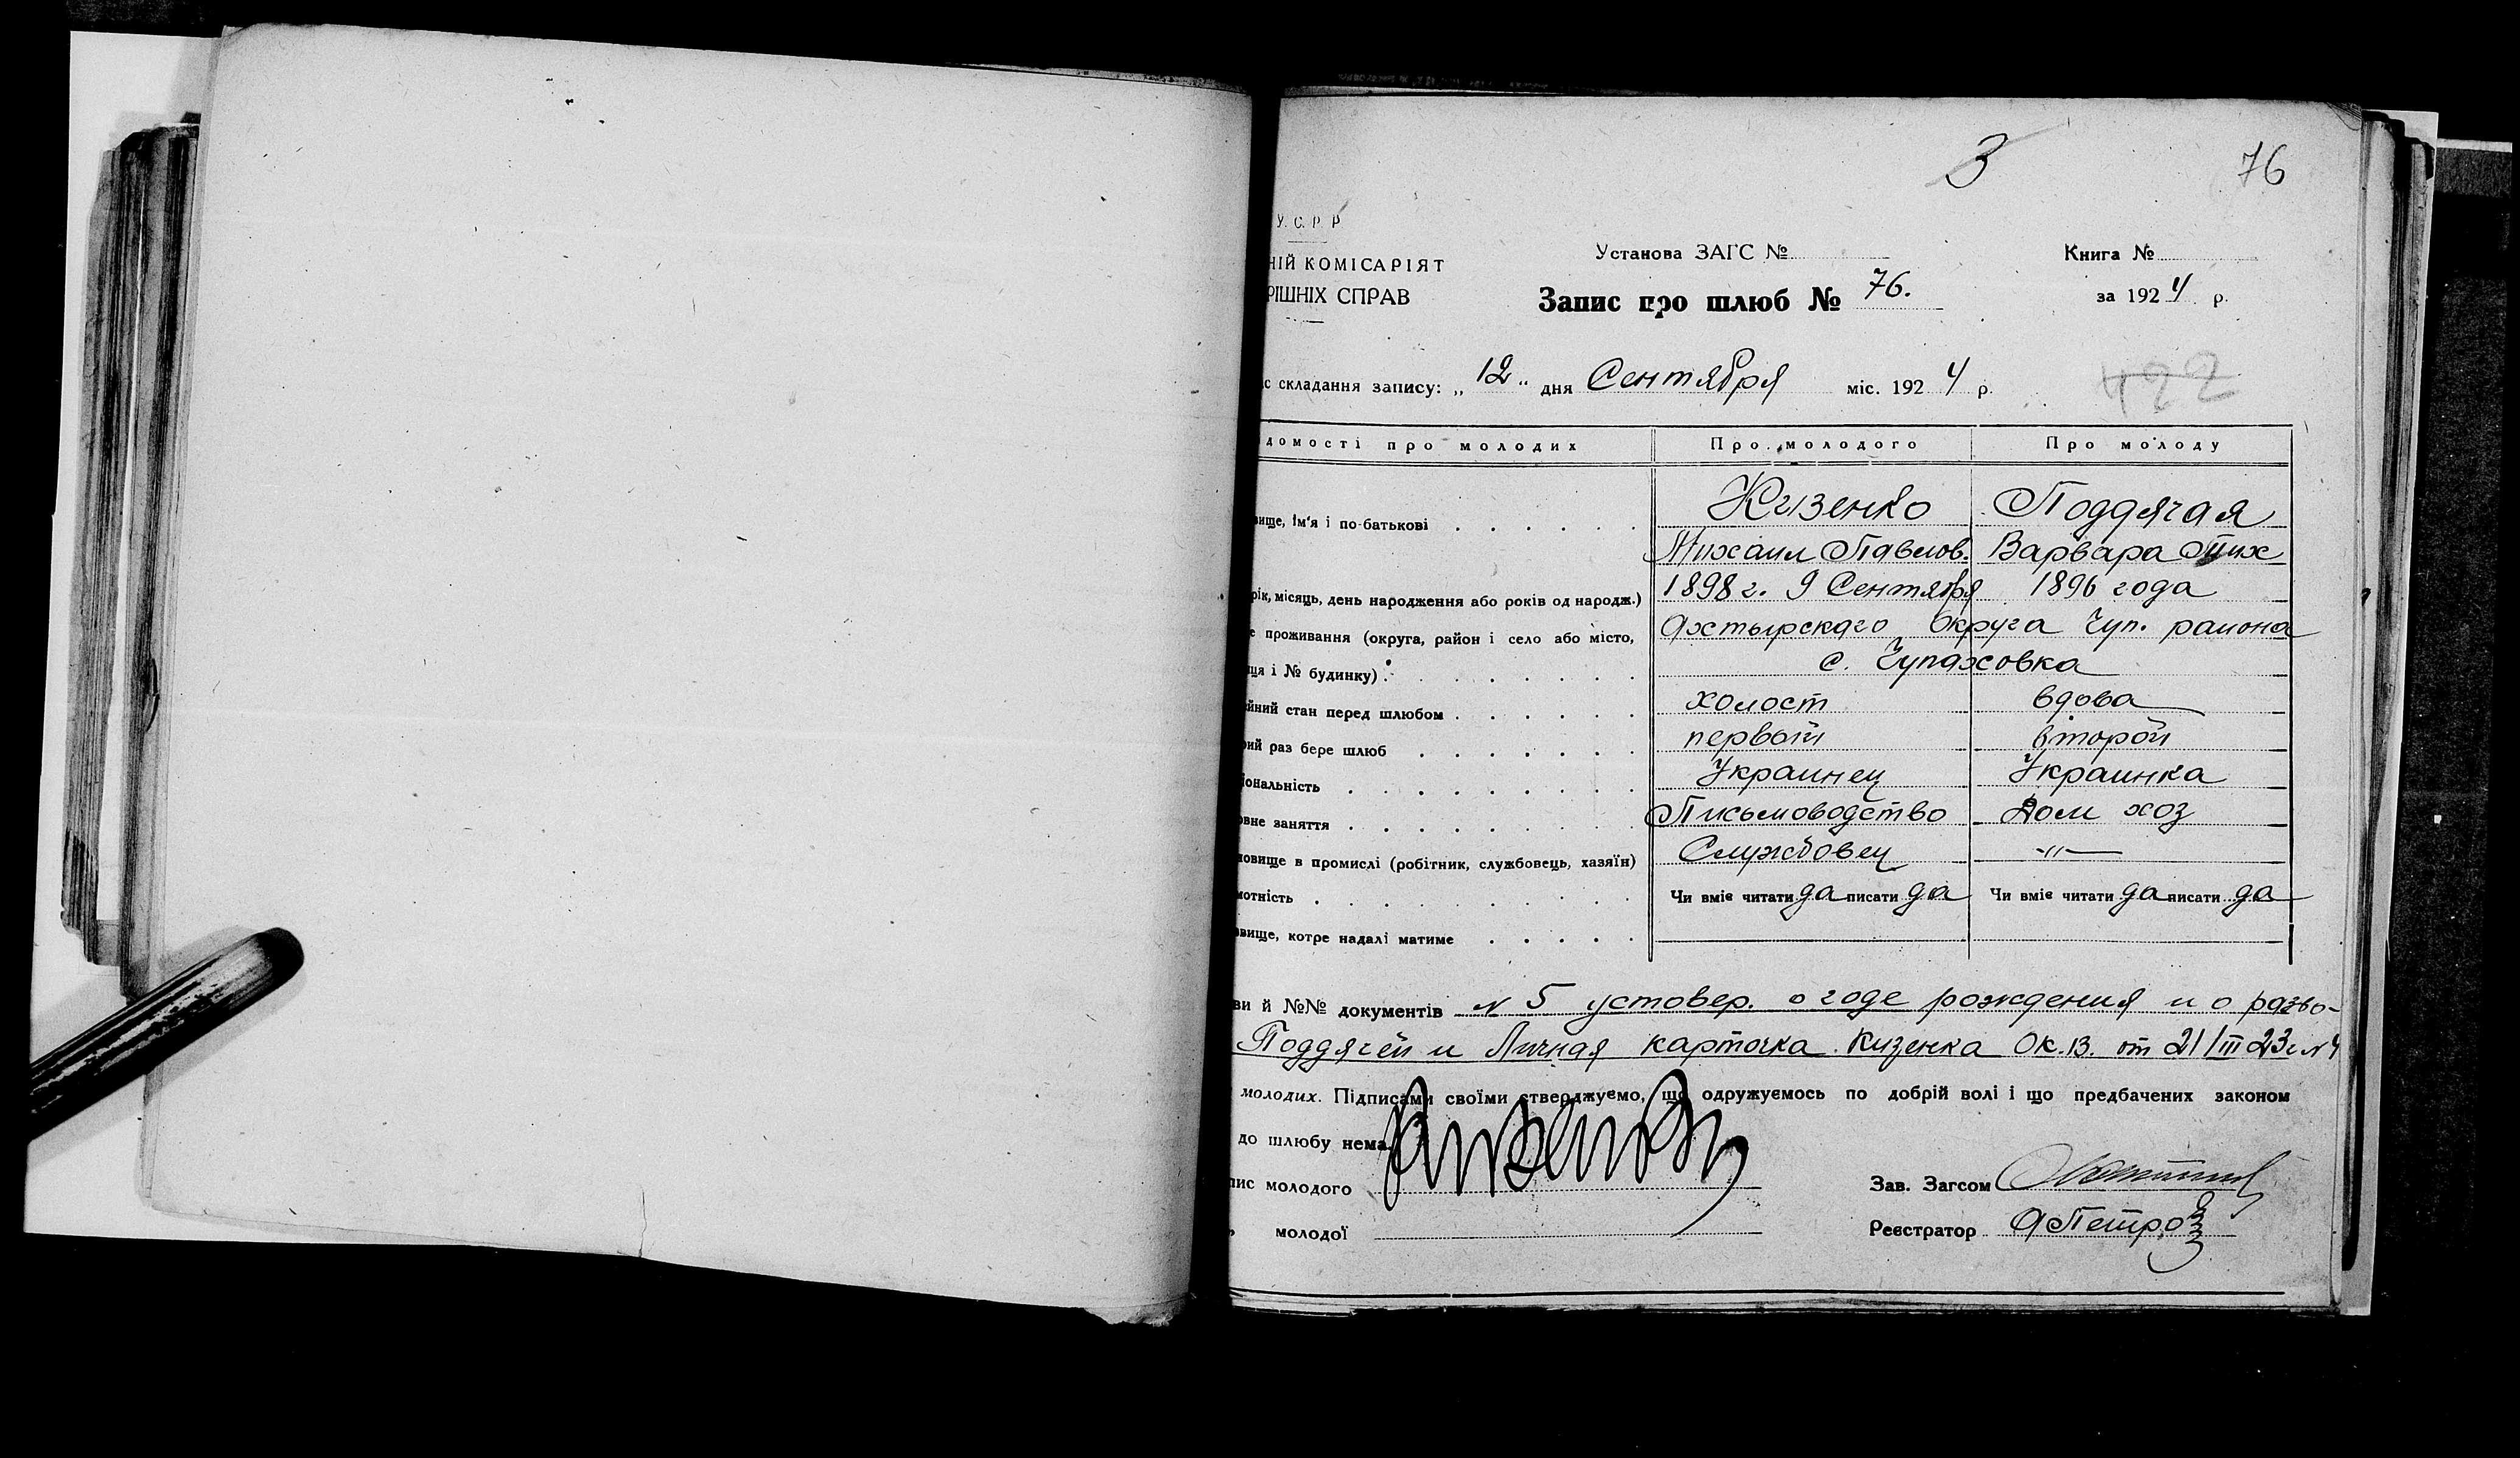 3
76
У.С.Р.Р
НІЙ КОМІСАРІЯТ
РІШНІХ СПРАВ
Установа ЗАГС №
Книга №
Запис про шлюб № 76.
за 1924 р.
с складання запису: „12" дня Сентября міс. 1924 р.
422
домості про молодих Про молодого Про молоду
вище, ім'я і по-батькові Кизенко Поддячая
Михаил Павлов. Варвара Тих
рік, місяць, день народження або років од народж.) 1898 г. 9 Сентября 1896 года
е проживання (округа, район і село або місто, Ахтырскаго Округа Чуп. района
ця і № будинку) с. Чупаховка
йний стан перед шлюбом холост вдова
рий раз бере шлюб первый второй
іональність Украинец Украинка
овне заняття Письмоводство Дом хоз
новище в промислі (робітник, службовець, хазяїн) Службовец -"-
мотність Чи вміє читати да писати да Чи вміє читати да писати да
звище, котре надалі матиме
ви й №№ документів № 5 устовер. о годе рождения и о разво-
Поддячей и Личная карточка Кизенка Ок.13. от 21/III 23 г № 4
молодих. Підписами своїми стверджуємо, що одружуємось по добрій волі і що предбачених законом
до шлюбу нема.
пис молодого
Зав. Загсом
молодої
Реєстратор АПетров